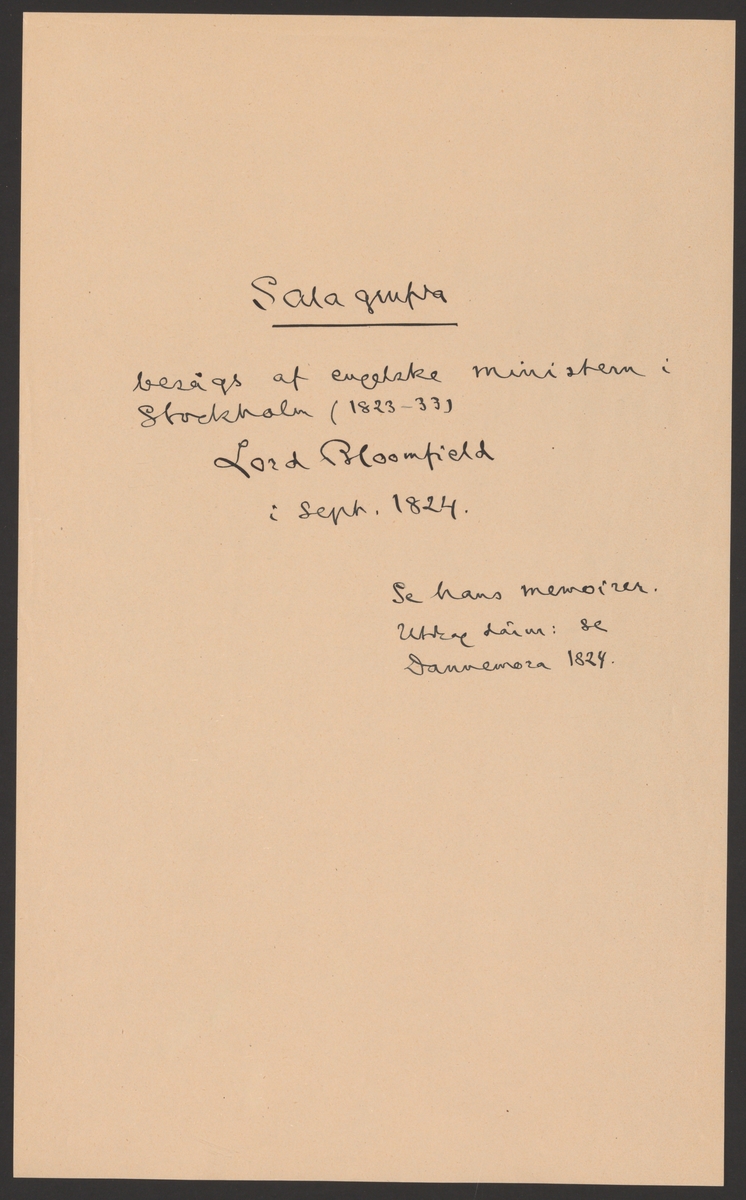 Sala grufva
besågs af engelske ministern i
Stockholm (1823-33)
Lord Bloomfield
i Sept. 1824.
Se hans memoirer.
Utdrag därur: se
Dannemora 1824.